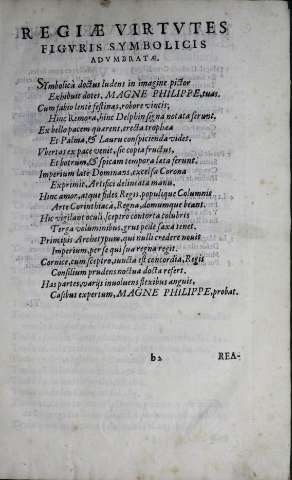 REGIÆ VIRTVTES
FIGVRIS SYMBOLICIS
ADVMBRATÆ.
SYmbolica doctus ludens in imagine pictor
Exhibuit dotes, MAGNE PHILIPPE, tuas.
Cum fabio lentè festinas, robore vincis,
Hinc Remora, hinc Delphin signa notata ferunt,
Ex bello pacem quærent, erecta trophæa
Et Palma, & Lauru conspicienda vides.
Vbertas ex pace venit, sic copia fructus,
Et botrum, & spicam tempora læta ferunt.
Imperium latè Dominans, excelsa Corona
Exprimit, Artifici delineata manu,
Hinc amor, atque fides Regis, populique Columnis
Arte Corinthiaca, Regna, domumque beant.
Hic vigilant oculi, sceptro contorta colubris
Terga voluminibus, grus pede saxa tenet.
Principis Archetypum, qui nulli credere nouit
Imperium, per se qui sua regna regit.
Cornice, cum sceptro, iuncta est concordia, Regis
Consilium prudens noctua docta refert.
Has partes, varijs inuoluens flexibus anguis,
Casibus expertum, MAGNE PHILIPPE, probat.
b2 REA-